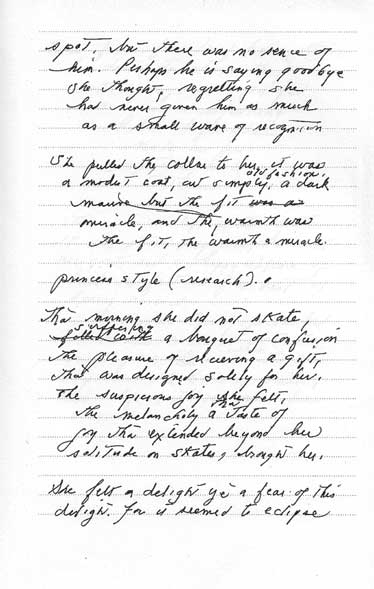 spot, but there was no sence of
him. Perhaps he is saying goodbye
she thought, regretting she
had never given him as much
as a small wave of recognition
She pulled the collar to her, it was
old fashion,
a modest coat, cut simply, a dark
mauve but the fit was a
miracle, and the, warmth was
the fit, the warmth a miracle.
princess style (research).
That morning she did not skate,
suffering
filled with a bouquet of confusion
the pleasure of recieving a gift,
that was designed solely for her.
the suspicious joy she felt,
the melancholy a taste of
joy that extended beyond her
solitude on skates, brought her.
She felt a delight yet a fear of this
delight. For it seemed to eclipse